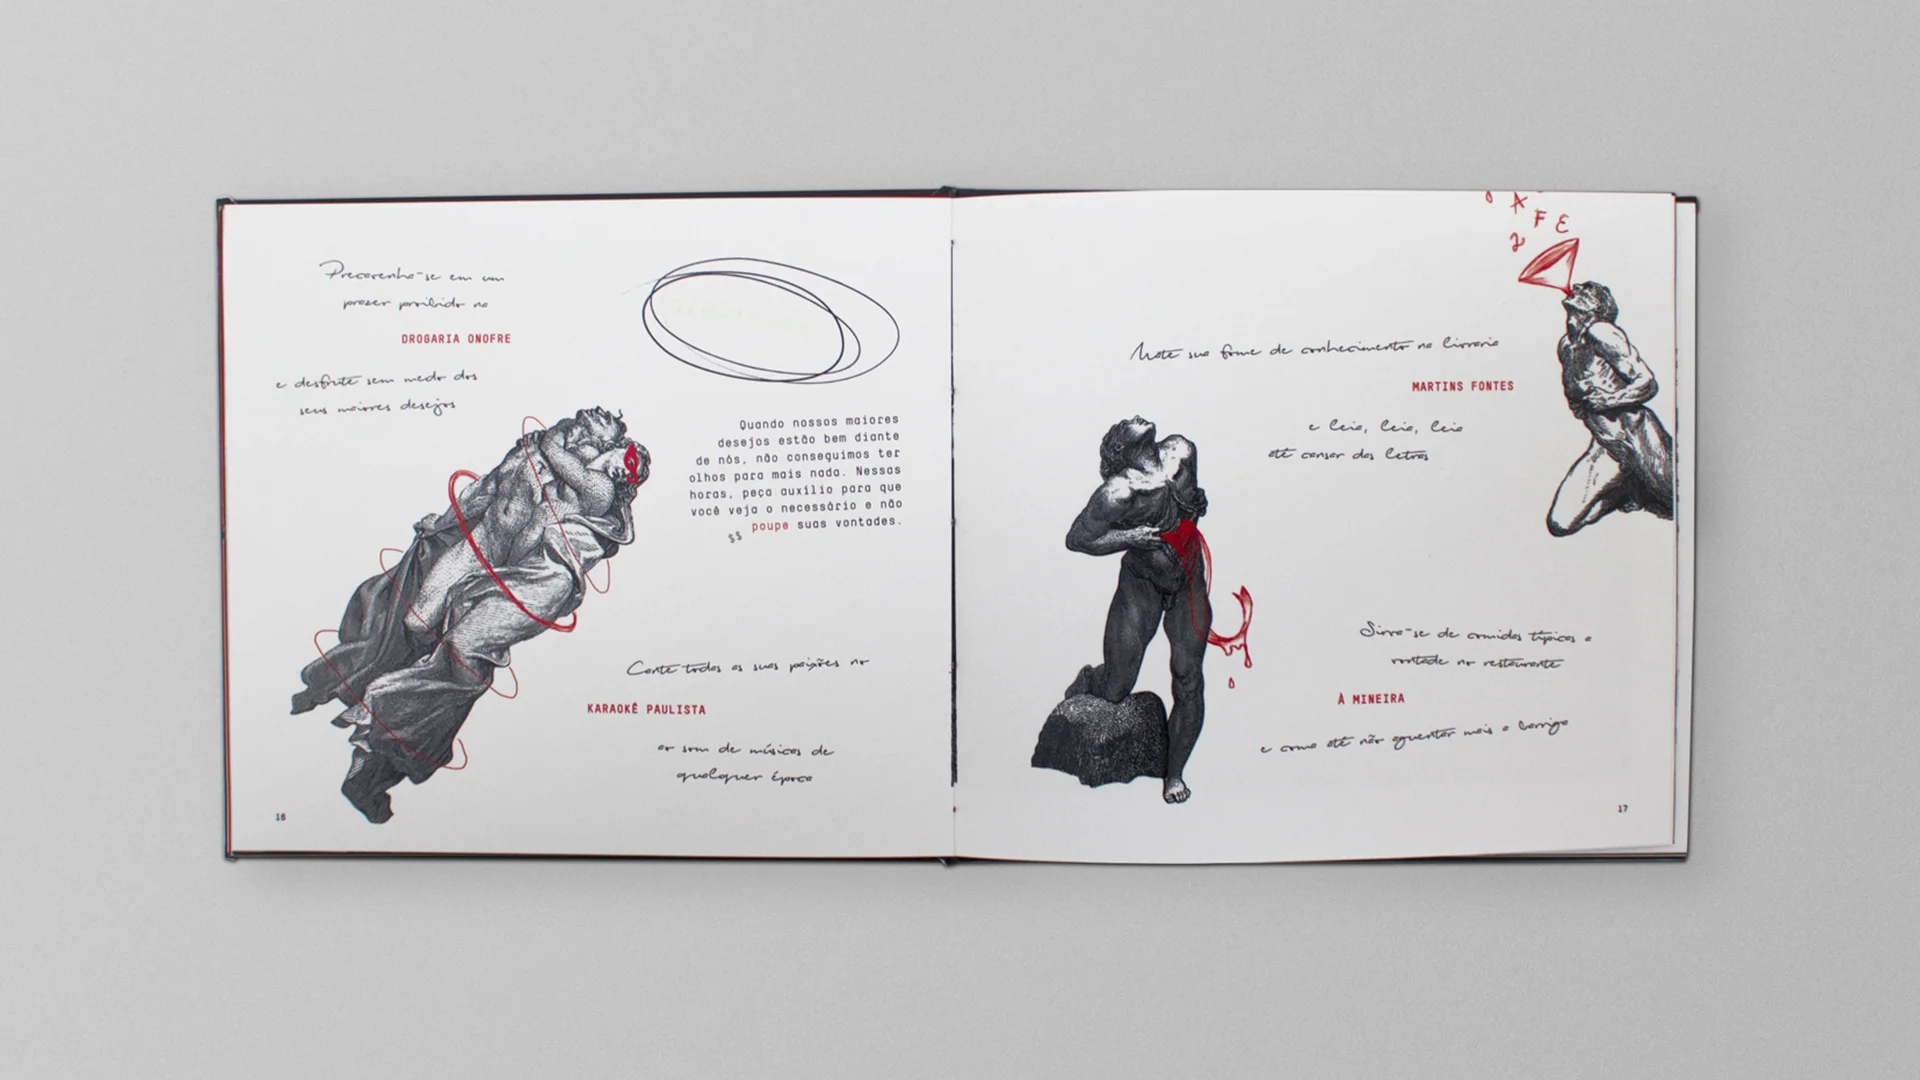 prazer proibido na
DROGARIA ONOFRE
e desfrute sem medo dos
seus maiores desejos
Quando nossos maiores
desejos estão bem diante
de nós, não conseguimos ter
olhos para mais nada. Nessas
horas, peça auxílio para que
você veja o necessário e não
$$ poupe suas vontades.
Cante todas as suas paixões no
KARAOKÊ PAULISTA
ao som de músicas de
qualquer época
16
A
F E
Mate sua fome de conhecimento na livraria
MARTINS FONTES
e leia, leia, leia
até cansar das letras
Sirva-se de comidas típicas a
vontade no restaurante
À MINEIRA
e coma até não aguentar mais a barriga
17